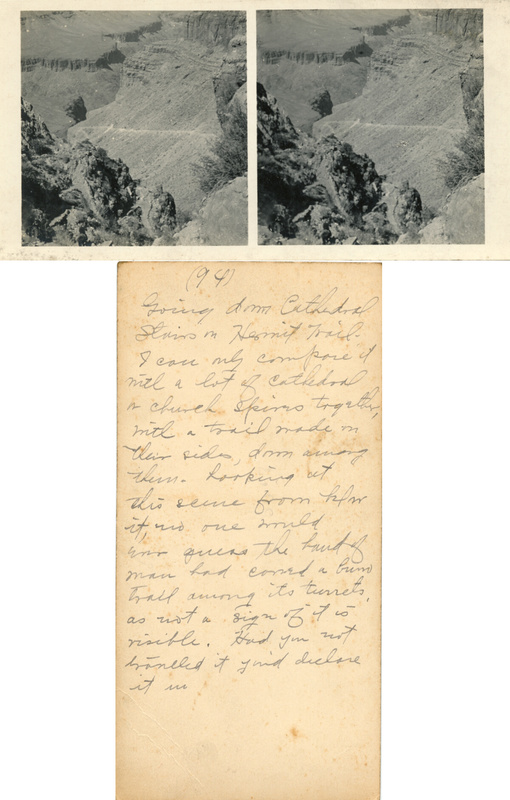 (94)
Going down Cathedral
Stairs on Hermit Trail.
I can only compare it
with a lot of cathedral
or church spires together,
with a trail made on
their sides, down among
them. Looking at
this scene from below
it, no one would
ever guess the hand of
man had carved a burro
trail among its turrets,
as not a sign of it is
visible. Had you not
traveled it you'd declare
it un